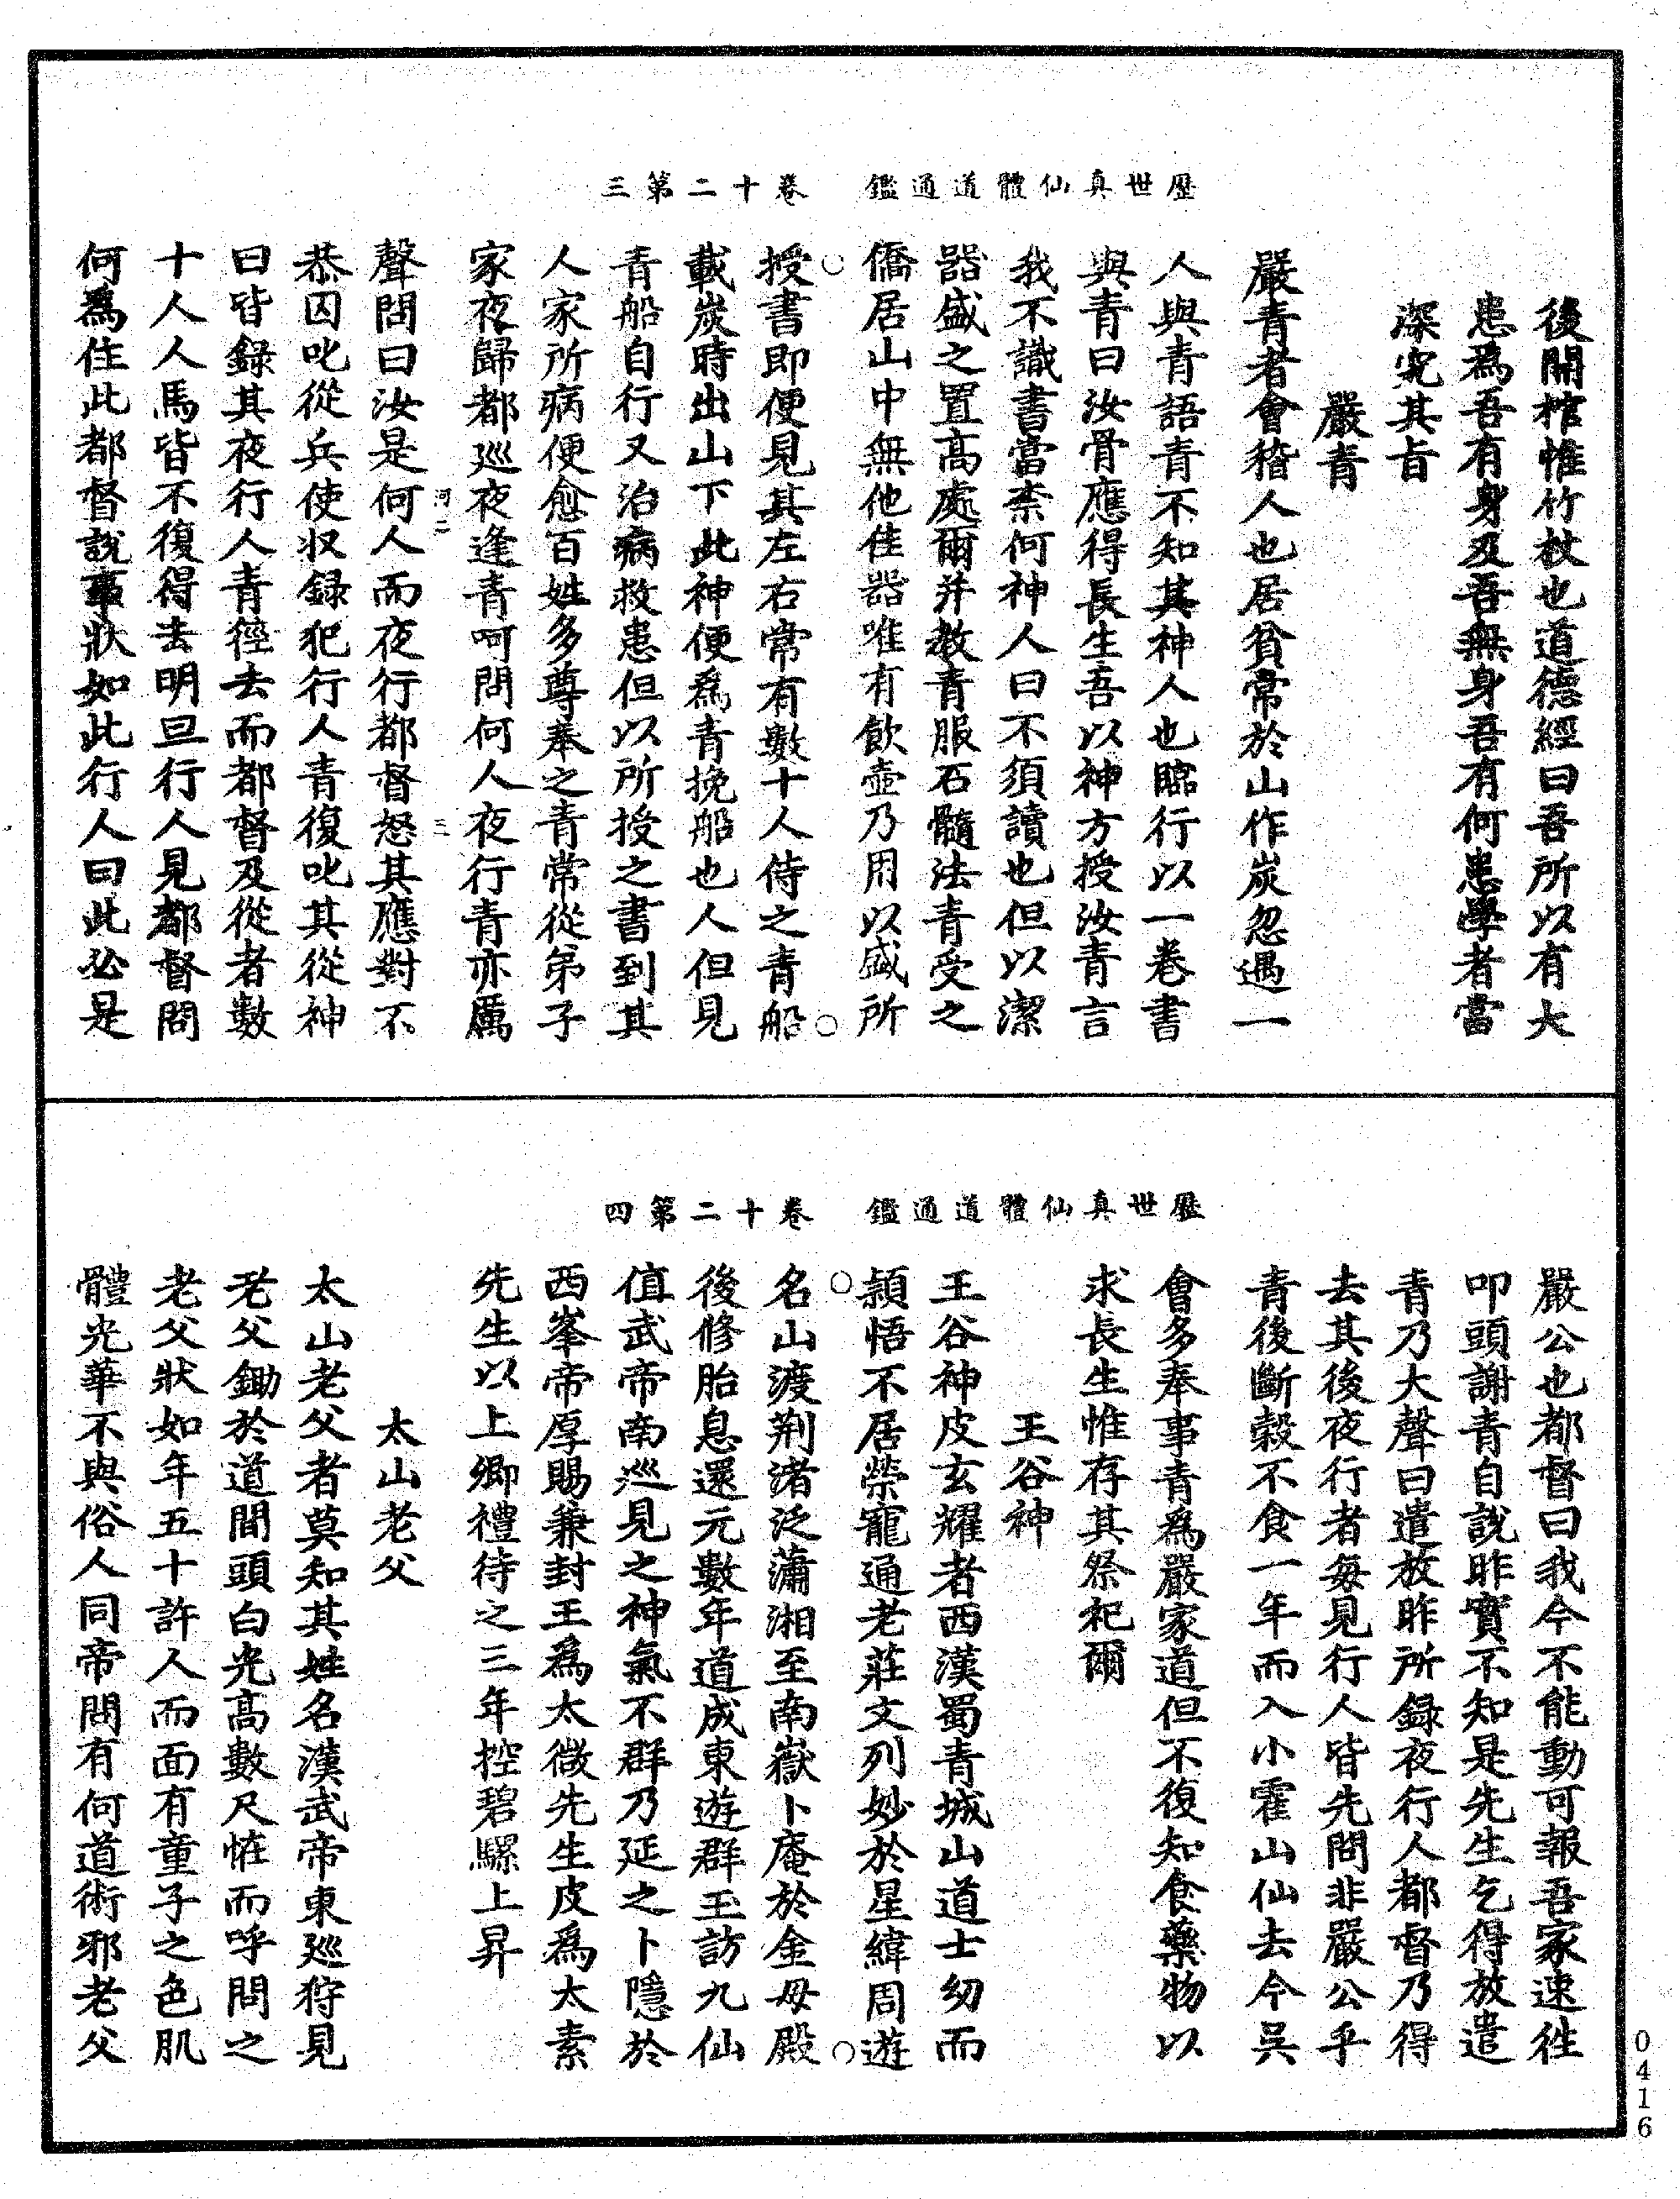 歷世真仙體道通鑑　卷十二第三
後開棺惟竹杖也道德經曰吾所以有大
患為吾有身及吾無身吾有何患學者當
深究其旨
嚴青
嚴青者會稽人也居貧常於山作炭忽遇一
人與青語青不知其神人也臨行以一卷書
與青曰汝骨應得長生吾以神方授汝青言
我不識書當柰何神人曰不須讀也但以潔
器盛之置高處爾并教青服石髓法青受之
僑居山中無他佳器唯有飲壺乃用以盛所
授書即便見其左右常有數十人侍之青船
載炭時出山下此神便為青挽船也人但見
青船自行又治病救患但以所授之書到其
人家所病便愈百姓多尊奉之青常從弟子
家夜歸都巡夜逢青呵問何人夜行青亦厲
河二
三
聲問曰汝是何人而夜行都督怒其應對不
恭囚叱從兵使收録犯行人青復叱其從神
曰皆録其夜行人青徑去而都督及從者數
十人人馬皆不復得去明旦行人見都督問
何為住此都督說事狀如此行人曰此必是
歷世真仙體道通鑑　卷十二第四
嚴公也都督曰我今不能動可報吾家速往
叩頭謝青自說昨實不知是先生乞得放遣
青乃大聲曰遣放昨所録夜行人都督乃得
去其後夜行者每見行人皆先問非嚴公乎
青後斷穀不食一年而入小霍山仙去今吳
會多奉事青為嚴家道但不復知食藥物以
求長生惟存其祭祀爾
王谷神
王谷神皮玄耀者西漢蜀青城山道士幼而
穎悟不居榮寵通老莊文列妙於星緯周遊
名山渡荆渚泛瀟湘至南嶽卜庵於金母殿
後修胎息還元數年道成東遊群玉訪九仙
值武帝南巡見之神氣不群乃延之卜隱於
西峯帝厚賜兼封王為太微先生皮為太素
先生以上卿禮待之三年控碧騾上昇
太山老父
太山老父者莫知其姓名漢武帝東巡狩見
老父鋤於道間頭白光高數尺恠而呼問之
老父狀如年五十許人而面有童子之色肌
體光華不與俗人同帝問有何道術邪老父
0416